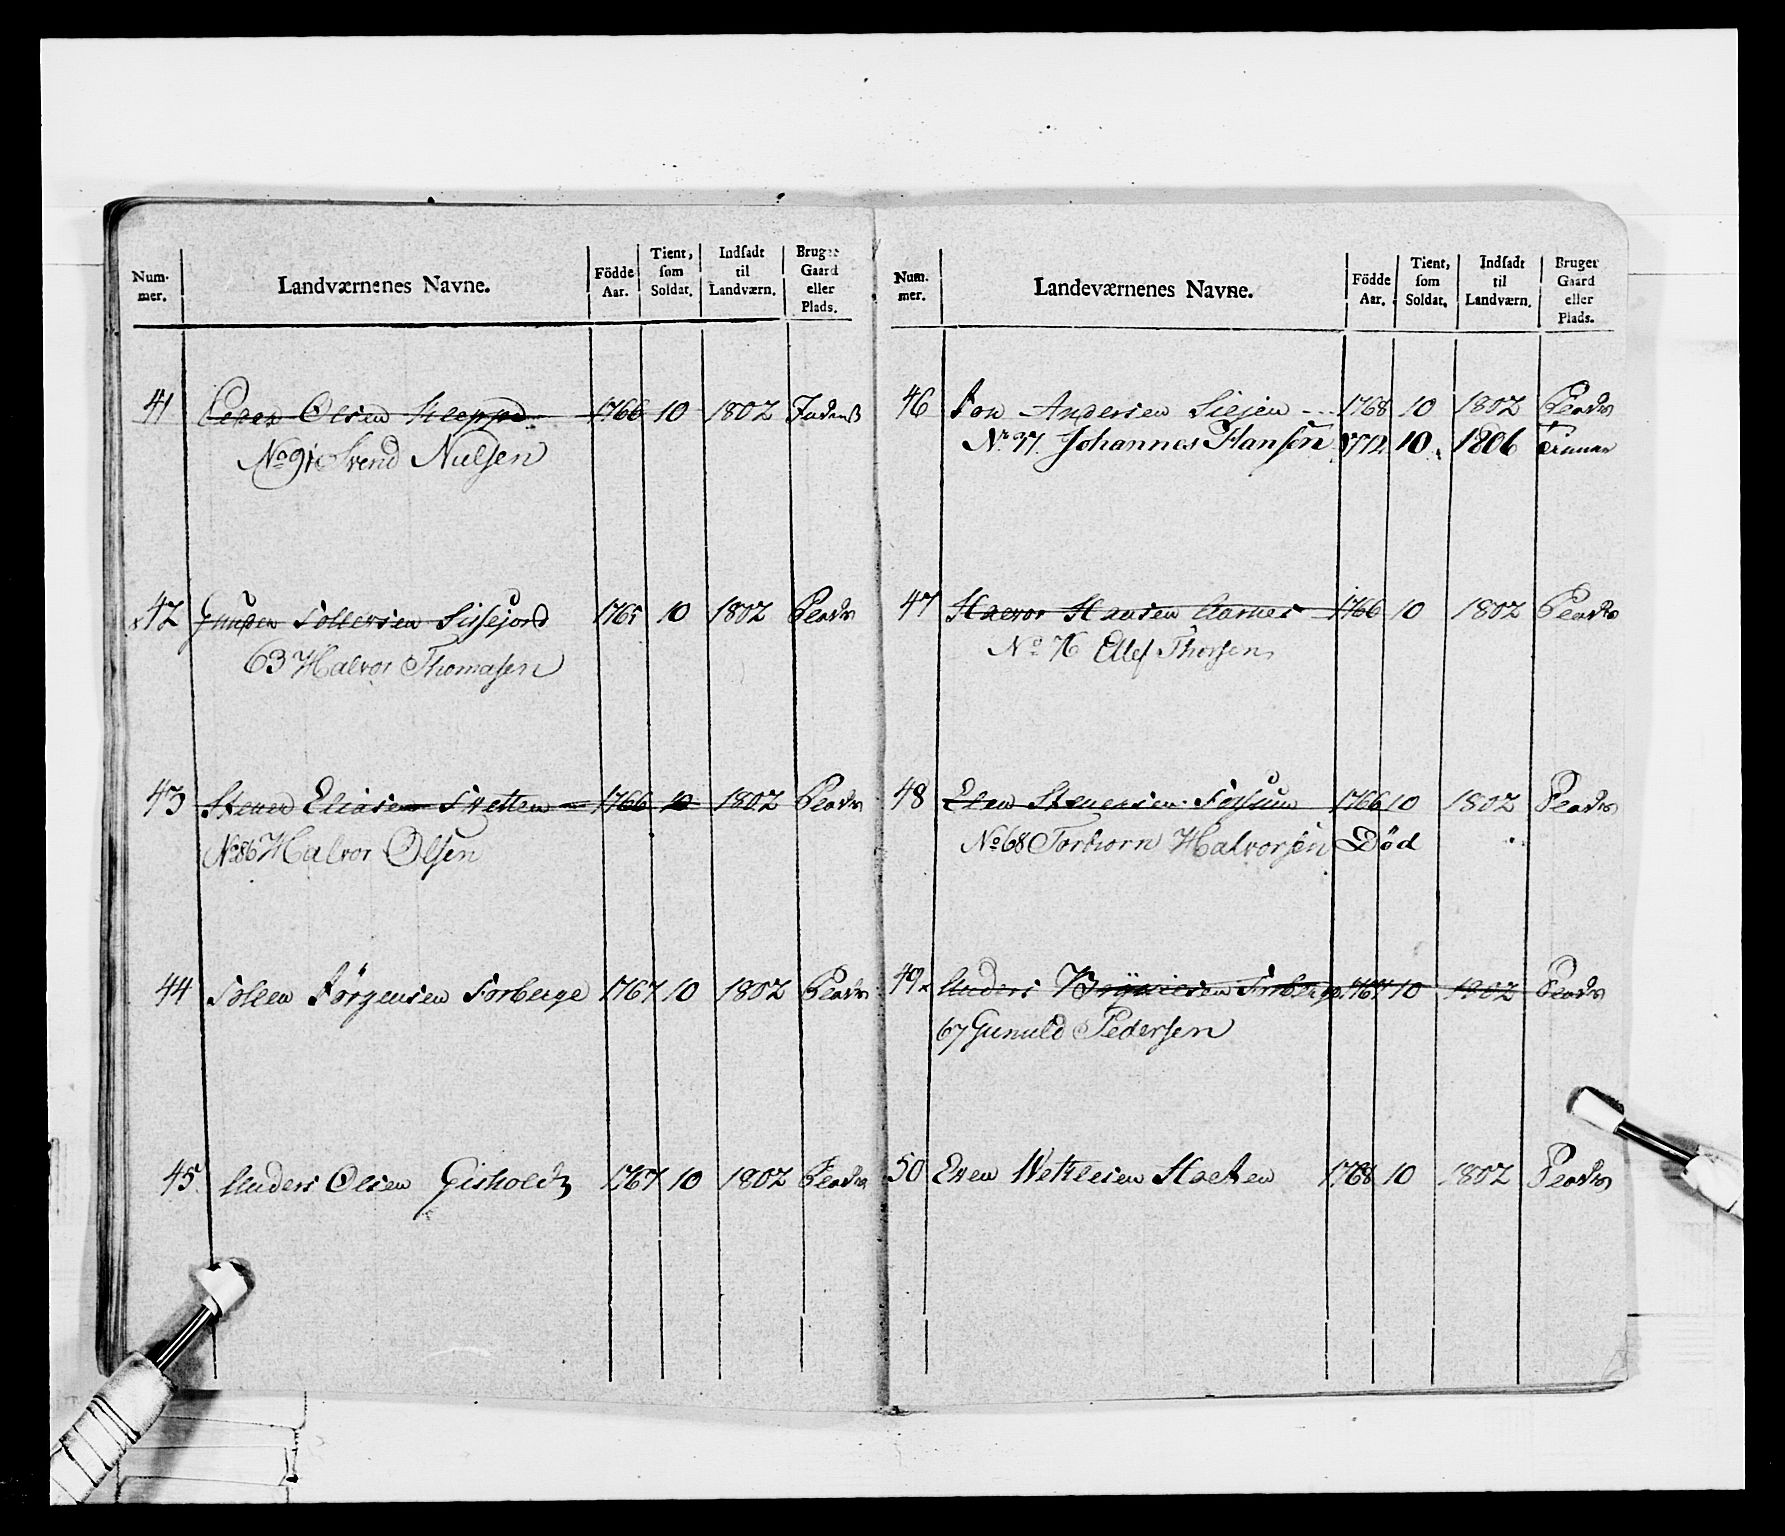 Num-
mer.
Landværnenes Navne.
Födde
Aar.
Tient,
som
Soldat.
Indsadt
til
Landværn.
Bruger
Gaard
eller
Plads.
41 Peder Olsen Kleppe 1766 10 1802
No 91 Svend Nielsen
42 Gunder Sollevsen 1765 10 1802 Plads
63 Halvor Thomasen
43 Stener Eliasen Svetten 1766 10 1802 Plads
No 86 Halvor Olsen
44 Solen Jörgensen Forberge 1767 10 1802 Plads
45 Anders Olsen Gisholdt 1767 10 1802 Plads
Num-
mer.
Landeværnenes Navne.
Födde
Aar.
Tient,
som
Soldat.
Indsadt
til
Landværn.
Bruger
Gaard
eller
Plads.
46 Jon Andersen Siljen 1768 10 1802 Plads
No 37. Johannes Hansen 1772 10 1806
47 Halvor Hansen Aarnes 1766 10 1802 Plads
No Ellef Thorsen
48 Stenersen Fossum 1766 10 1802 Plads
No 68 Torbiorn Halvorsen Död
49 Anders 10 1802 Plads
67 Gunuld Pedersen
50 Even Wetlesen 1768 10 1802 Plads